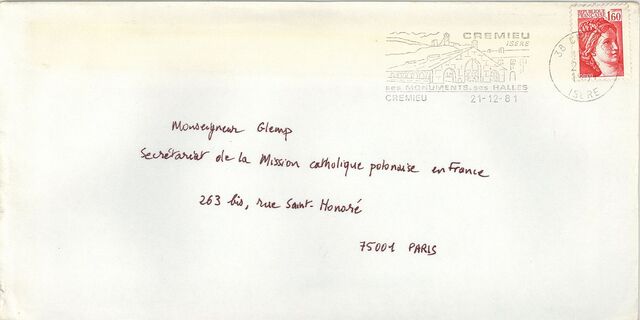 CREMIEU
ISERE
ses MONUMENTS.ses HALLES
CREMIEU 21-12-81
1,60
38
ISERE
Monseigneur Glemp
Secrétariat de la Mission catholique polonaise en France
263 bis, rue Saint-Honoré
75001 PARIS